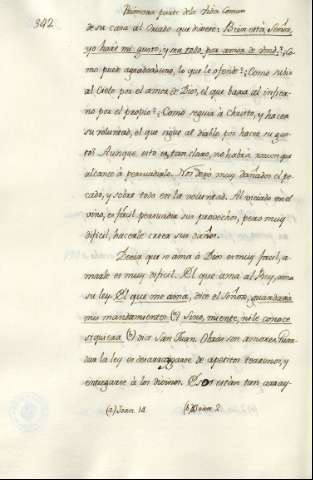 Primera parte de la Vida Comun
342
de su casa al Criado que dixere: Bien está, Señor,
yo haré mi gusto, y sea todo por amor de vmd? ¿Co-
mo puede agradar á uno, lo que le ofende? ¿Como subir
al Cielo por el amor de Dios, el que baxa al infier-
no por el propio? ¿Como seguir á Christo, y hacer
su voluntad, el que sigue al diablo por hacer su gus-
to? Aunque esto es tan claro, no habrá razon que
alcance á persuadirlo. Nos dexó muy dañados el pe-
cado, y sobre todo en la voluntad. Al viciado en el
vino, es facil persuadir sus provechos, pero muy
dificil, hacerle creer sus daños.
Decia que si ama á Dios es muy facil, a-
marle es muy dificil. El que ama al Rey, ama
su ley. El que me ama, dice el Señor, guardará
mis mandamientos (a) Sino, miente, ni le conoce
siquiera (b) dice San Juan. Obras son amores. Guar-
dar la ley es desarraygarse de apetitos terrenos, y
entregarse á los divinos. Esos estan tan array-
(a) Joan 14. (b) 1 Joan 2.